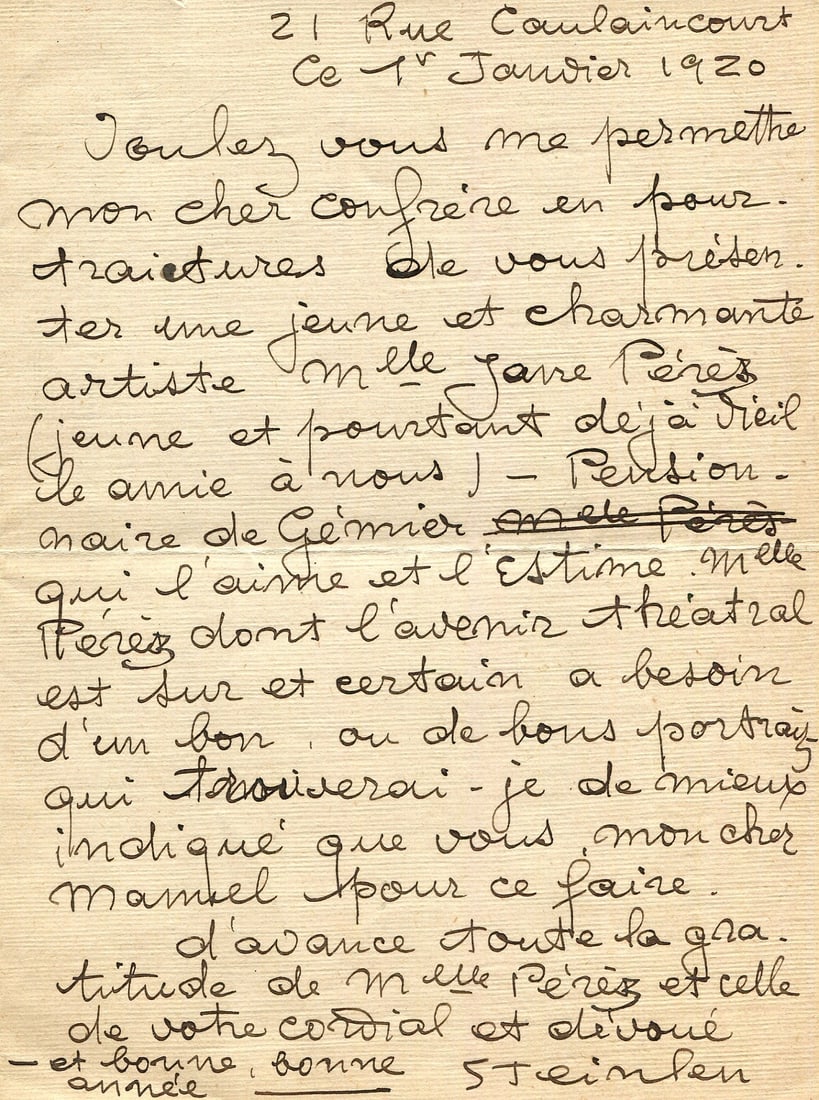 21 Rue Caulaincourt
Ce 1r Janvier 1920
Voulez vous me permettre
mon cher confrère en pour-
traictures de vous présen-
ter une jeune et charmante
artiste Mlle Jane Pérèz
(jeune et pourtant déjà vieil
le amie à nous) — Pension-
naire de Gémier Melle Pérès
qui l'aime et l'Estime. Melle
Pérèz dont l'avenir théatral
est sur et certain a besoin
d'un bon, ou de bons portraits
qui trouverai-je de mieux
indiqué que vous, mon cher
Manuel pour ce faire.
d'avance toute la gra-
titude de Melle Pérèz et celle
de votre cordial et dévoué
— et bonne, bonne Steinlen
année